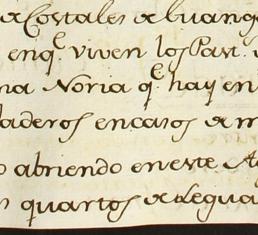 de Costales de buang
enq.e viven los Past.
na Noria q.e hay en
laderos encaios de m
o abriendo eneste A
quartos de Legua